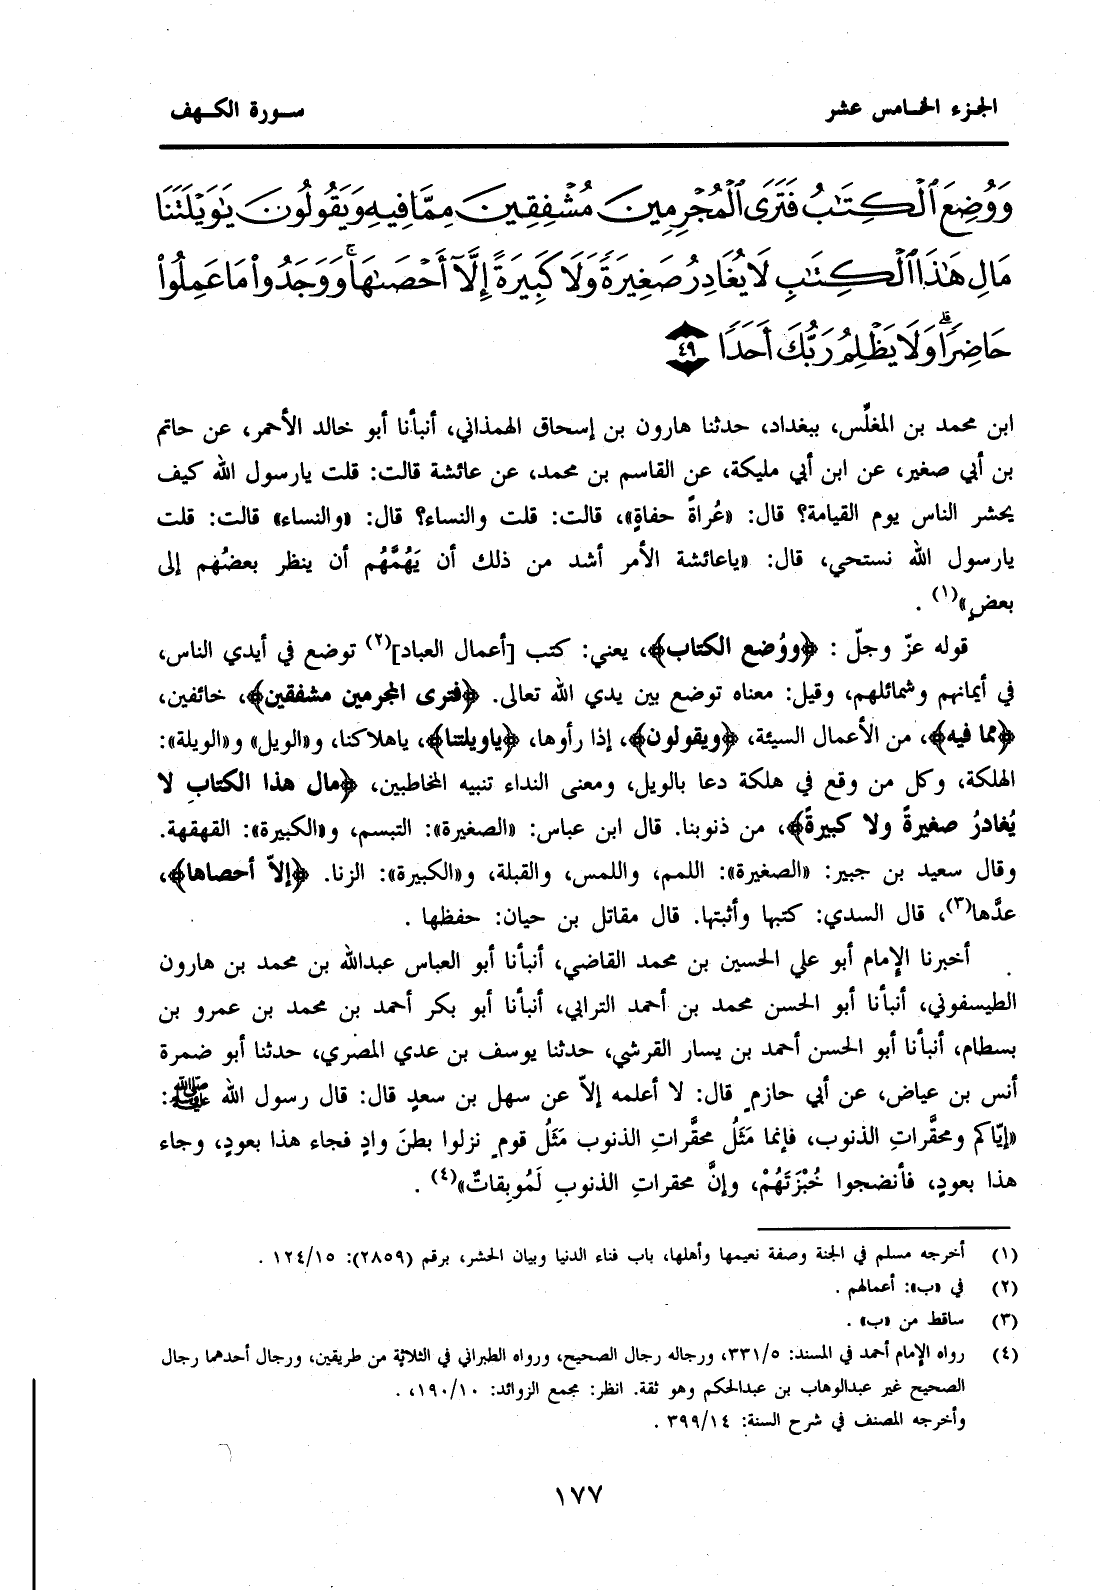 الجزء الخامس عشر
سورة الكهف
وَوُضِعَ ٱلْكِتَٰبُ فَتَرَى ٱلْمُجْرِمِينَ مُشْفِقِينَ مِمَّا فِيهِ وَيَقُولُونَ يَٰوَيْلَتَنَا
مَالِ هَٰذَا ٱلْكِتَٰبِ لَا يُغَادِرُ صَغِيرَةً وَلَا كَبِيرَةً إِلَّآ أَحْصَىٰهَا ۚ وَوَجَدُوا۟ مَا عَمِلُوا۟
حَاضِرًا ۗ وَلَا يَظْلِمُ رَبُّكَ أَحَدًا ٤٩
ابن محمد بن المغلّس، ببغداد، حدثنا هارون بن إسحاق الهمذاني، أنبأنا أبو خالد الأحمر، عن حاتم
بن أبي صغير، عن ابن أبي مليكة، عن القاسم بن محمد، عن عائشة قالت: قلت يارسول الله كيف
يحشر الناس يوم القيامة؟ قال: «عُراةً حفاةٍ»، قالت: قلت والنساء؟ قال: «والنساء» قالت: قلت
يارسول الله نستحي، قال: «ياعائشة الأمر أشد من ذلك أن يَهُمَّهُم أن ينظر بعضُهم إلى
بعضٍ»(١) .
قوله عزّ وجلّ : ﴿ووُضع الكتاب﴾، يعني: كتب [أعمال العباد](٢) توضع في أيدي الناس،
في أيمانهم وشمائلهم، وقيل: معناه توضع بين يدي الله تعالى. ﴿فترى المجرمين مشفقين﴾، خائفين،
﴿مما فيه﴾، من الأعمال السيئة، ﴿ويقولون﴾، إذا رأوها، ﴿ياويلتنا﴾، ياهلاكنا، و«الويل» و«الويلة»:
الهلكة، وكل من وقع في هلكة دعا بالويل، ومعنى النداء تنبيه المخاطبين، ﴿مال هذا الكتابِ لا
يُغادرُ صغيرةً ولا كبيرةً﴾، من ذنوبنا. قال ابن عباس: «الصغيرة»: التبسم، و«الكبيرة»: القهقهة.
وقال سعيد بن جبير: «الصغيرة»: اللمم، واللمس، والقبلة، و«الكبيرة»: الزنا. ﴿إلاّ أحصاها﴾،
عدَّها(٣)، قال السدي: كتبها وأثبتها. قال مقاتل بن حيان: حفظها .
أخبرنا الإمام أبو علي الحسين بن محمد القاضي، أنبأنا أبو العباس عبدالله بن محمد بن هارون
الطيسفوني، أنبأنا أبو الحسن محمد بن أحمد الترابي، أنبأنا أبو بكر أحمد بن محمد بن عمرو بن
بسطام، أنبأنا أبو الحسن أحمد بن يسار القرشي، حدثنا يوسف بن عدي المصري، حدثنا أبو ضمرة
أنس بن عياض، عن أبي حازمٍ قال: لا أعلمه إلاّ عن سهل بن سعدٍ قال: قال رسول الله ﷺ:
«إيّاكم ومحقَّراتِ الذنوب، فإنما مَثَلُ محقَّراتِ الذنوب مَثَلُ قومٍ نزلوا بطنَ وادٍ فجاء هذا بعودٍ، وجاء
هذا بعودٍ، فأنضجوا خُبْزَتَهُمْ، وإنَّ محقراتِ الذنوبِ لَمُوبِقاتٌ»(٤) .
(١) أخرجه مسلم في الجنة وصفة نعيمها وأهلها، باب فناء الدنيا وبيان الحشر، برقم (٢٨٥٩): ١٢٤/١٥ .
(٢) في «ب»: أعمالهم .
(٣) ساقط من «ب» .
(٤) رواه الإمام أحمد في المسند: ٣٣١/٥، ورجاله رجال الصحيح، ورواه الطبراني في الثلاثة من طريقين، ورجال أحدهما رجال
الصحيح غير عبدالوهاب بن عبدالحكم وهو ثقة. انظر: مجمع الزوائد: ١٩٠/١٠، .
وأخرجه المصنف في شرح السنة: ٣٩٩/١٤ .
١٧٧